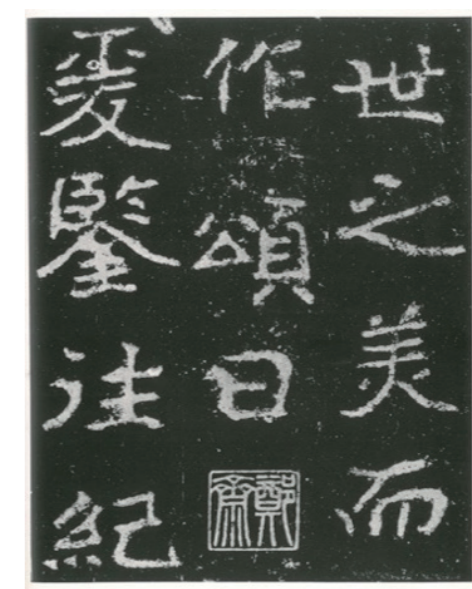 世之美而
作頌曰
鄭齋
爰鑒往紀